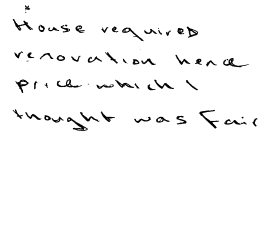 House required
renovation hence
price which I
thought was fair